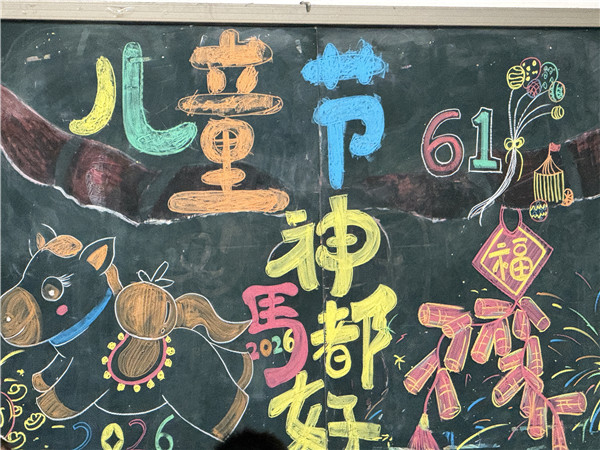 儿童节
61
神都好
福
馬
2026
2026